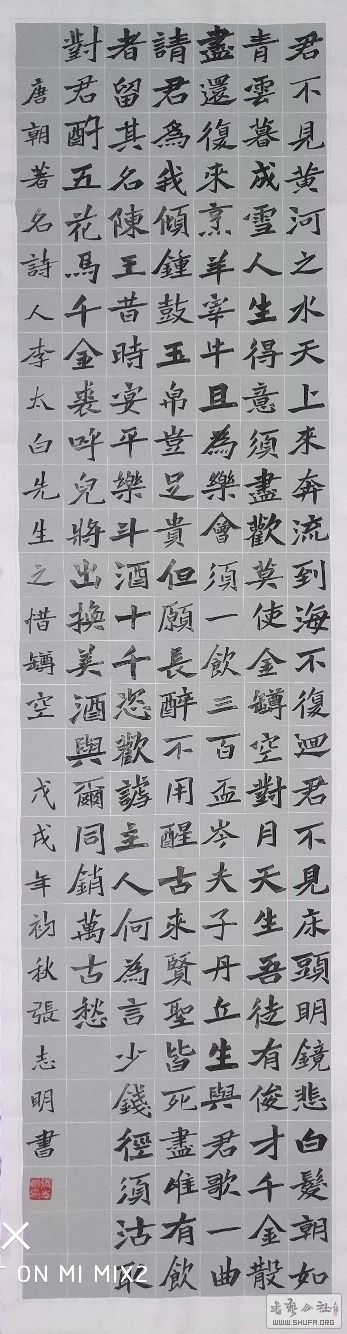 君不見黃河之水天上來奔流到海不復迴君不見床頭明鏡悲白髮朝如
青雲暮成雪人生得意須盡歡莫使金罇空對月天生吾徒有俊才千金散
盡還復來烹羊宰牛且為樂會須一飲三百盃岑夫子丹丘生與君歌一曲
請君為我傾鍾鼓玉帛豈足貴但願長醉不用醒古來賢聖皆死盡唯有飲
者留其名陳王昔時宴平樂斗酒十千恣歡謔主人何為言少錢徑須沽取
對君酌五花馬千金裘呼兒將出換美酒與爾同銷萬古愁
唐朝著名詩人李太白先生之惜罇空 戊戌年初秋張志明書
ON MI MIX2
WWW.SHUFA.ORG